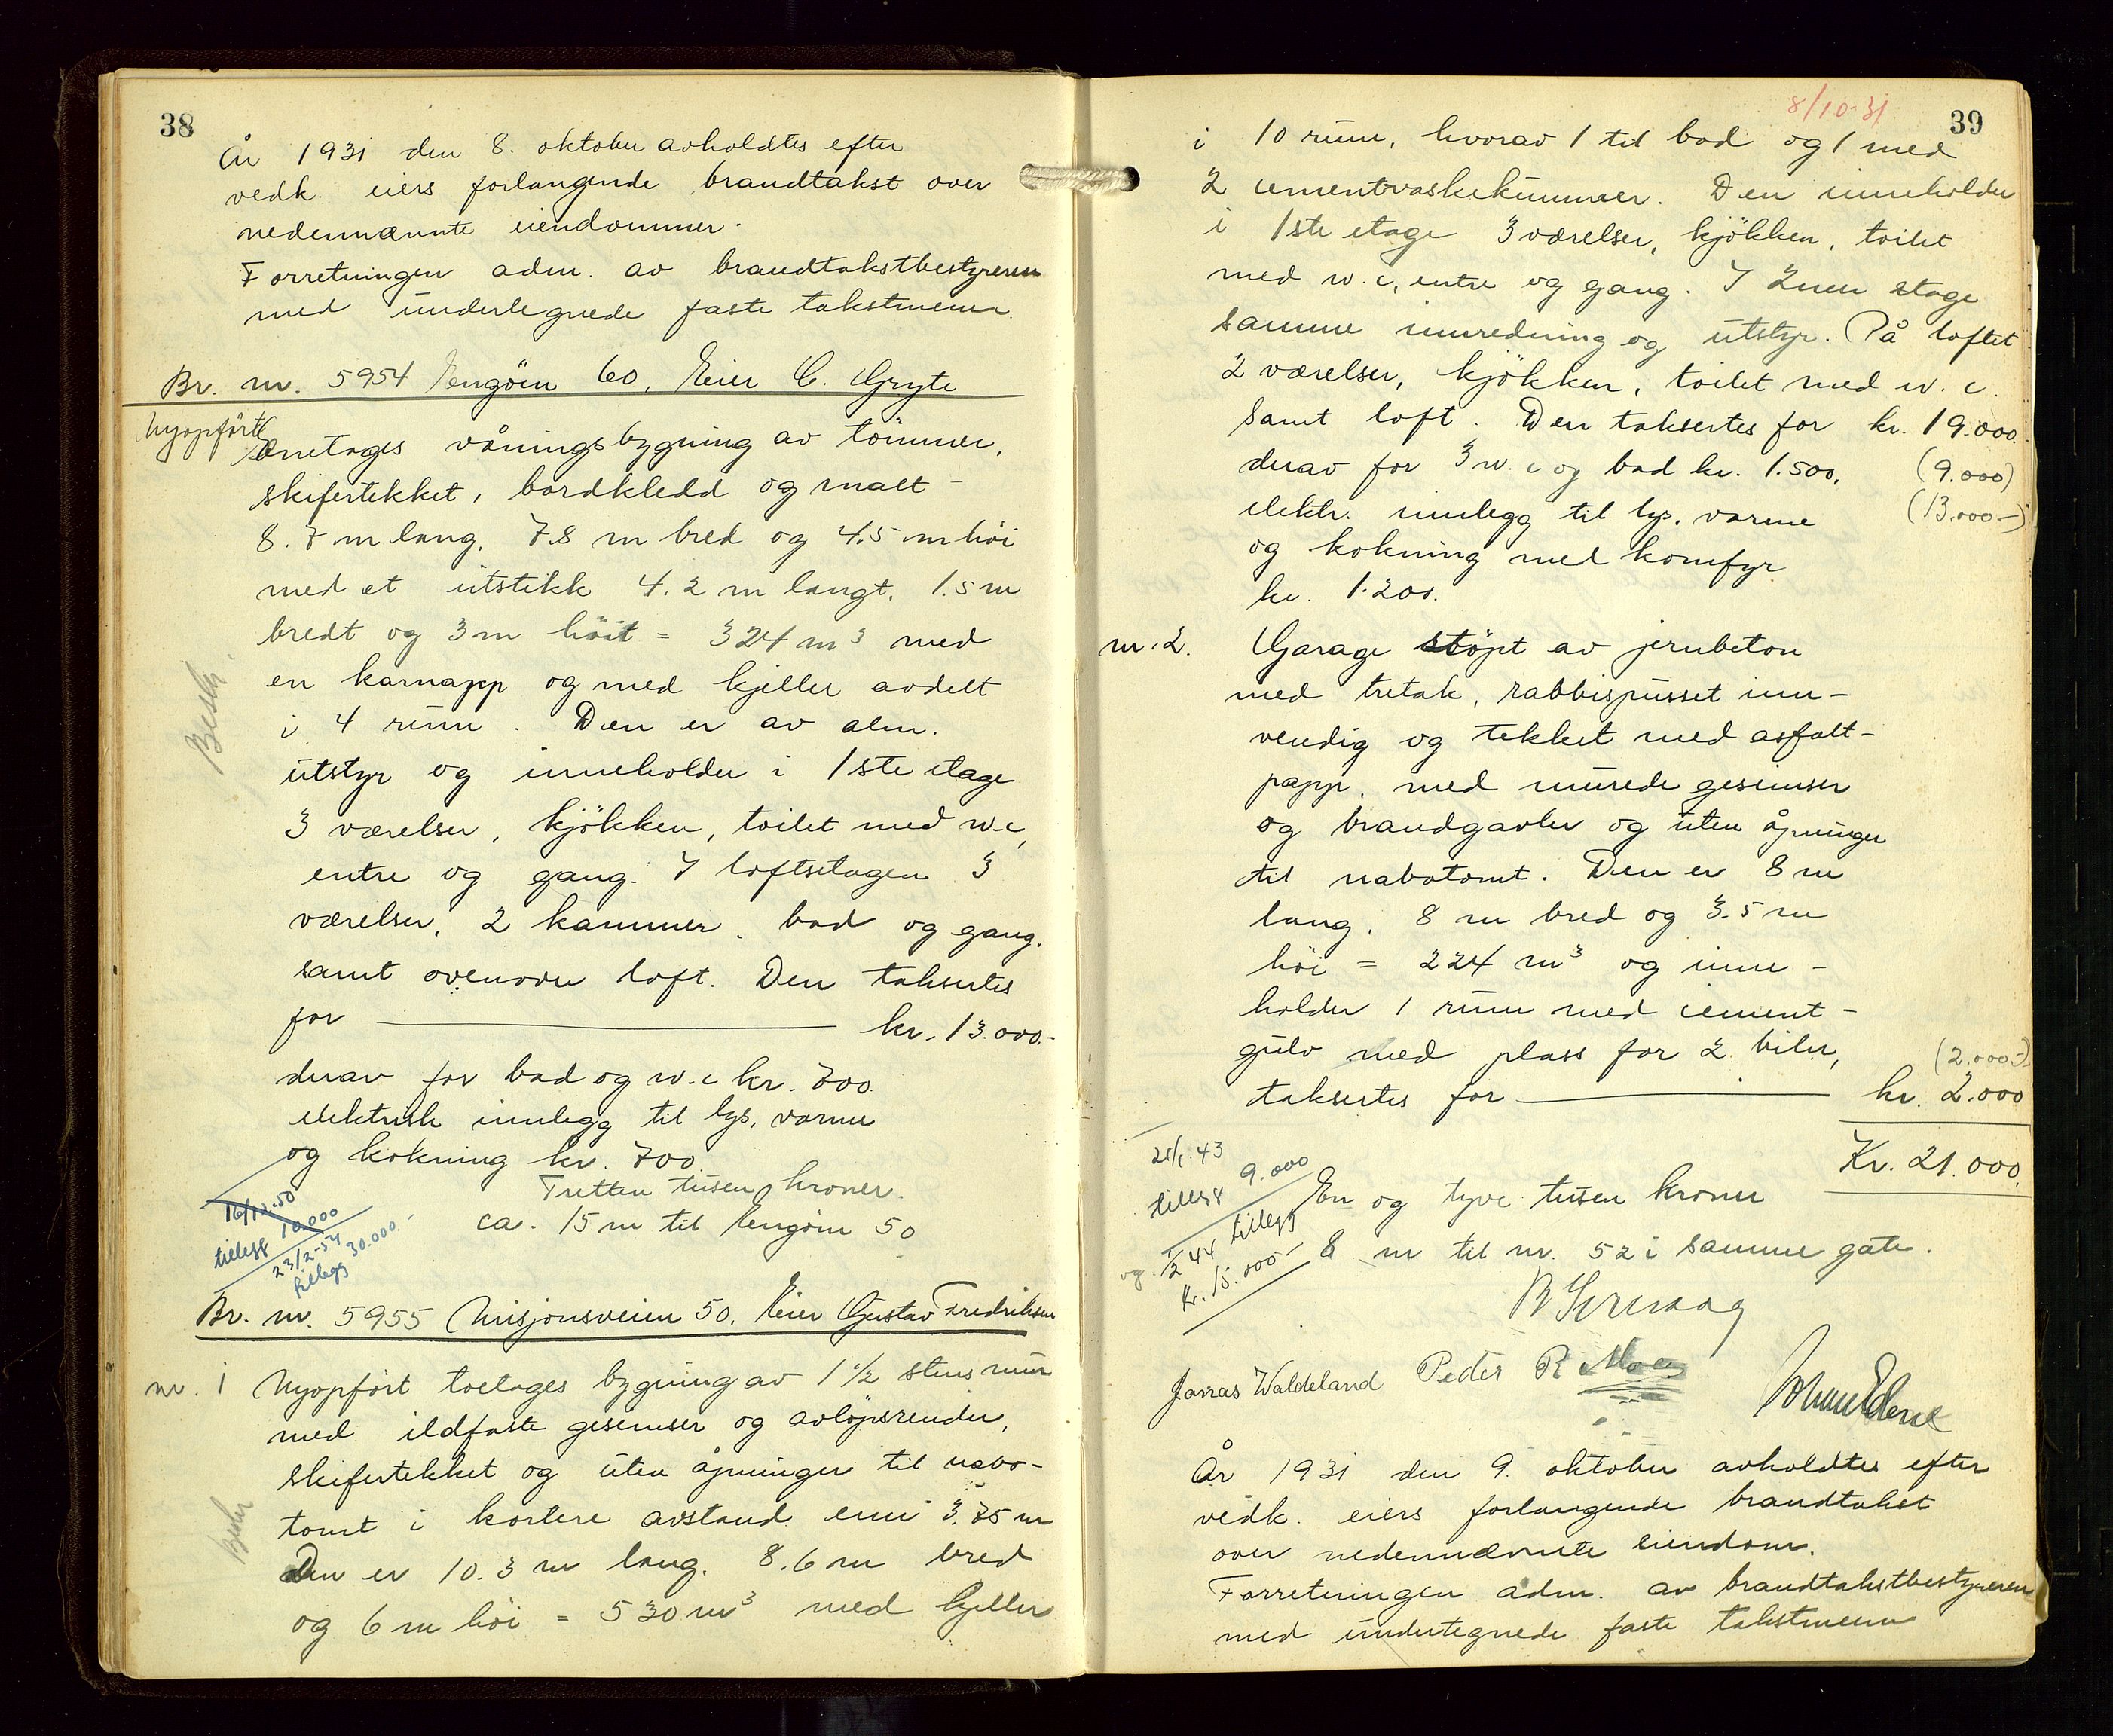 38
År 1931 den 8. oktober avholdtes efter
vedk. eiers forlangende brandtakst over
nedennævnte eiendommer.
Forretningen adm. av brandtakstbestyreren
med undertegnede faste takstmenn.
Br. nr. 5954 Engöen 60, Eier C. Gryte
Nyopført
enetages våningsbygning av tömmer,
skifertekket, bordkledd og malt –
8.7 m lang, 7.8 m bred og 4.5 m höi
med et utstikk 4.2 m langt, 1.5 m
bredt og 3 m höit = 324 m³ med
en karnapp og med kjeller avdelt
i 4 rum. Den er av alm.
Besk.
utstyr og inneholder i 1ste etage
3 værelser, kjökken, toilet med w.c,
entre og gang. I loftsetagen 3
værelser, 2 kammer, bad og gang,
samt ovenover loft. Den taksertes
for kr. 13.000.-
derav for bad og w.c kr. 700.
elektrisk innlegg til lys, varme
og kokning kr. 700.
Tretten tusen kroner.
ca. 15 m til Engöen 50
16/12-50
tillegg 10.000
23/2-54
tillegg 30.000.-
Br. nr. 5955 Misjonsveien 50, Eier Gustav Fredriksen
nr. 1 Nyopfört toetages bygning av 1 1/2 stens mur
med ildfaste gesemser og avlöpsrender,
skifertekket og uten åpninger til nabo-
tomt i kortere avstand enn 3.75 m
Besk
Den er 10.3 m lang, 8.6 m bred
og 6 m höi = 530 m³ med kjeller
8/10-31
39
i 10 rum, hvorav 1 til bad og 1 med
2 cementvaskekummer. Den inneholder
i 1ste etage 3 værelser, kjökken, toilet
med w.c, entre og gang. I 2nen etage
samme innredning og utstyr. På loftet
2 værelser, kjökken, toilet med w.c.
samt loft. Den taksertes for kr. 19.000.
derav for 3 w.c og bad kr. 1.500, (9.000)
elektr. innlegg til lys, varme (13.000.-)
og kokning med komfyr
kr. 1.200.
nr. 2. Garage støpt av jernbeton
med tretak, rabbispusset inn-
vendig og tekket med asfalt-
papp, med murede gesemser
og brandgavler og uten åpninger
til nabotomt. Den er 8 m
lang, 8 m bred og 3.5 m
höi = 224 m³ og inne-
holder 1 rum med cement-
gulv med plass for 2 biler, (2.000.-)
taksertes for kr. 2.000
Kr. 21.000.
43
tillegg 9.000
En og tyve tusen kroner
og 1/2 44 tillegg
kr. 15.000.-
8 m til nr. 52 i samme gate.
Jonas Waldeland Peder R Moe
År 1931 den 9. oktober avholdtes efter
vedk. eiers forlangende brandtakst
over nedennævnte eiendom.
Forretningen adm. av brandtakstbestyreren
med undertegnede faste takstmenn